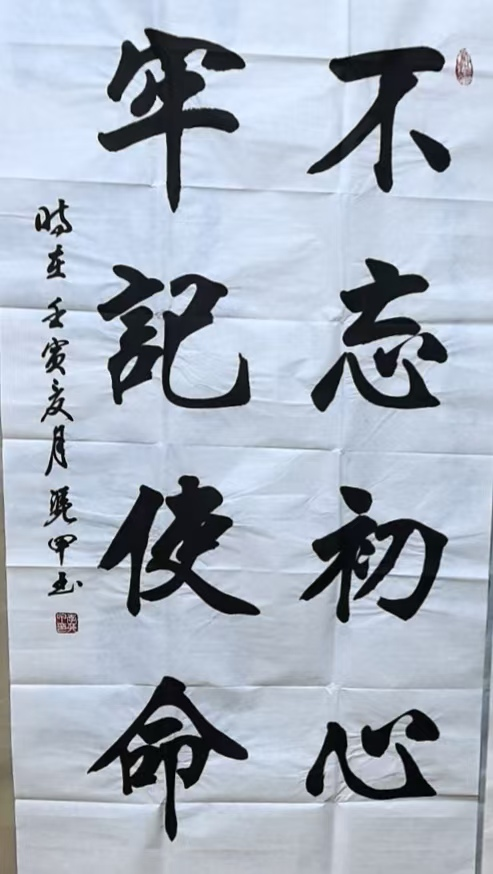 不忘初心
牢記使命
時在壬寅亥月 甲玉